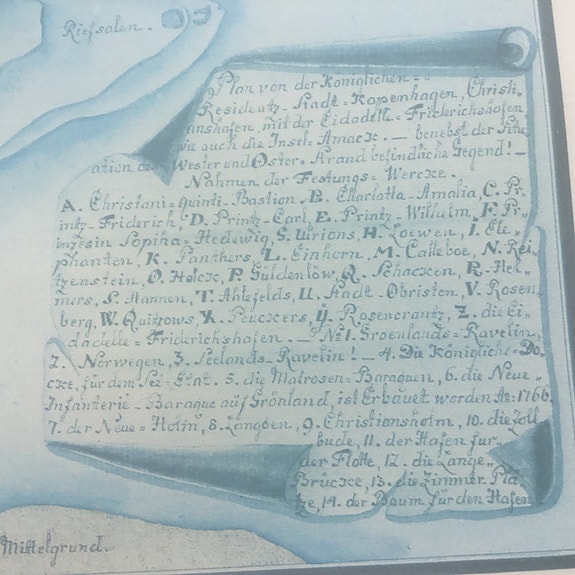 Riefsalen.
Plan von der Königlichen =
Residentz = Stadt = Kopenhagen, Christi =
anshafen, mit der Cidadelle = Friderichshafen
wie auch die Insel = Amack. — benebst der Situ =
ation der Wester und Oster = Strand befindliche Gegend! —
Nahmen der Festungs = Wercke.
A. Christani = Quinti = Bastion, B. Charlotta = Amalia, C. Pr =
intz = Friderich, D. Printz = Carl, E. Printz = Wilhelm, F. Pr =
inzesin Sophia = Hedewig, G. Urions, H. Loewen, I. Ele =
phanten, K. Panthers, L. Einhorn, M. Calleboe, N. Rei =
tzenstein, O. Holck, P. Güldenlow, Q. Schacken, R. Hel =
mers, S. Hannen, T. Ahlefelds, U. Stadt = Obristen, V. Rosen =
berg, W. Quitzows, X. Peuckers, Y. Rosencrantz, Z. die Ci =
dadelle = Friderichshafen. — No 1. Groenlands = Ravelin,
2. Norwegen, 3. Seelands = Ravelin! — 4. Die Königliche = Do =
cke, für dem See = Etat. 5. die Matrosen = Baraquen, 6. die Neue =
Infanterie = Baraque auf Grönland, ist Erbauet worden Ao: 1766.
7. der Neue = Holm, 8. Langöen, 9. Christiansholm, 10. die Zoll
bude, 11. der Hafen für
der Flotte, 12. die Lange =
Brücke, 13. die Zimmer Plä =
tze, 14. der Baum für den Hafen
Mittelgrund.